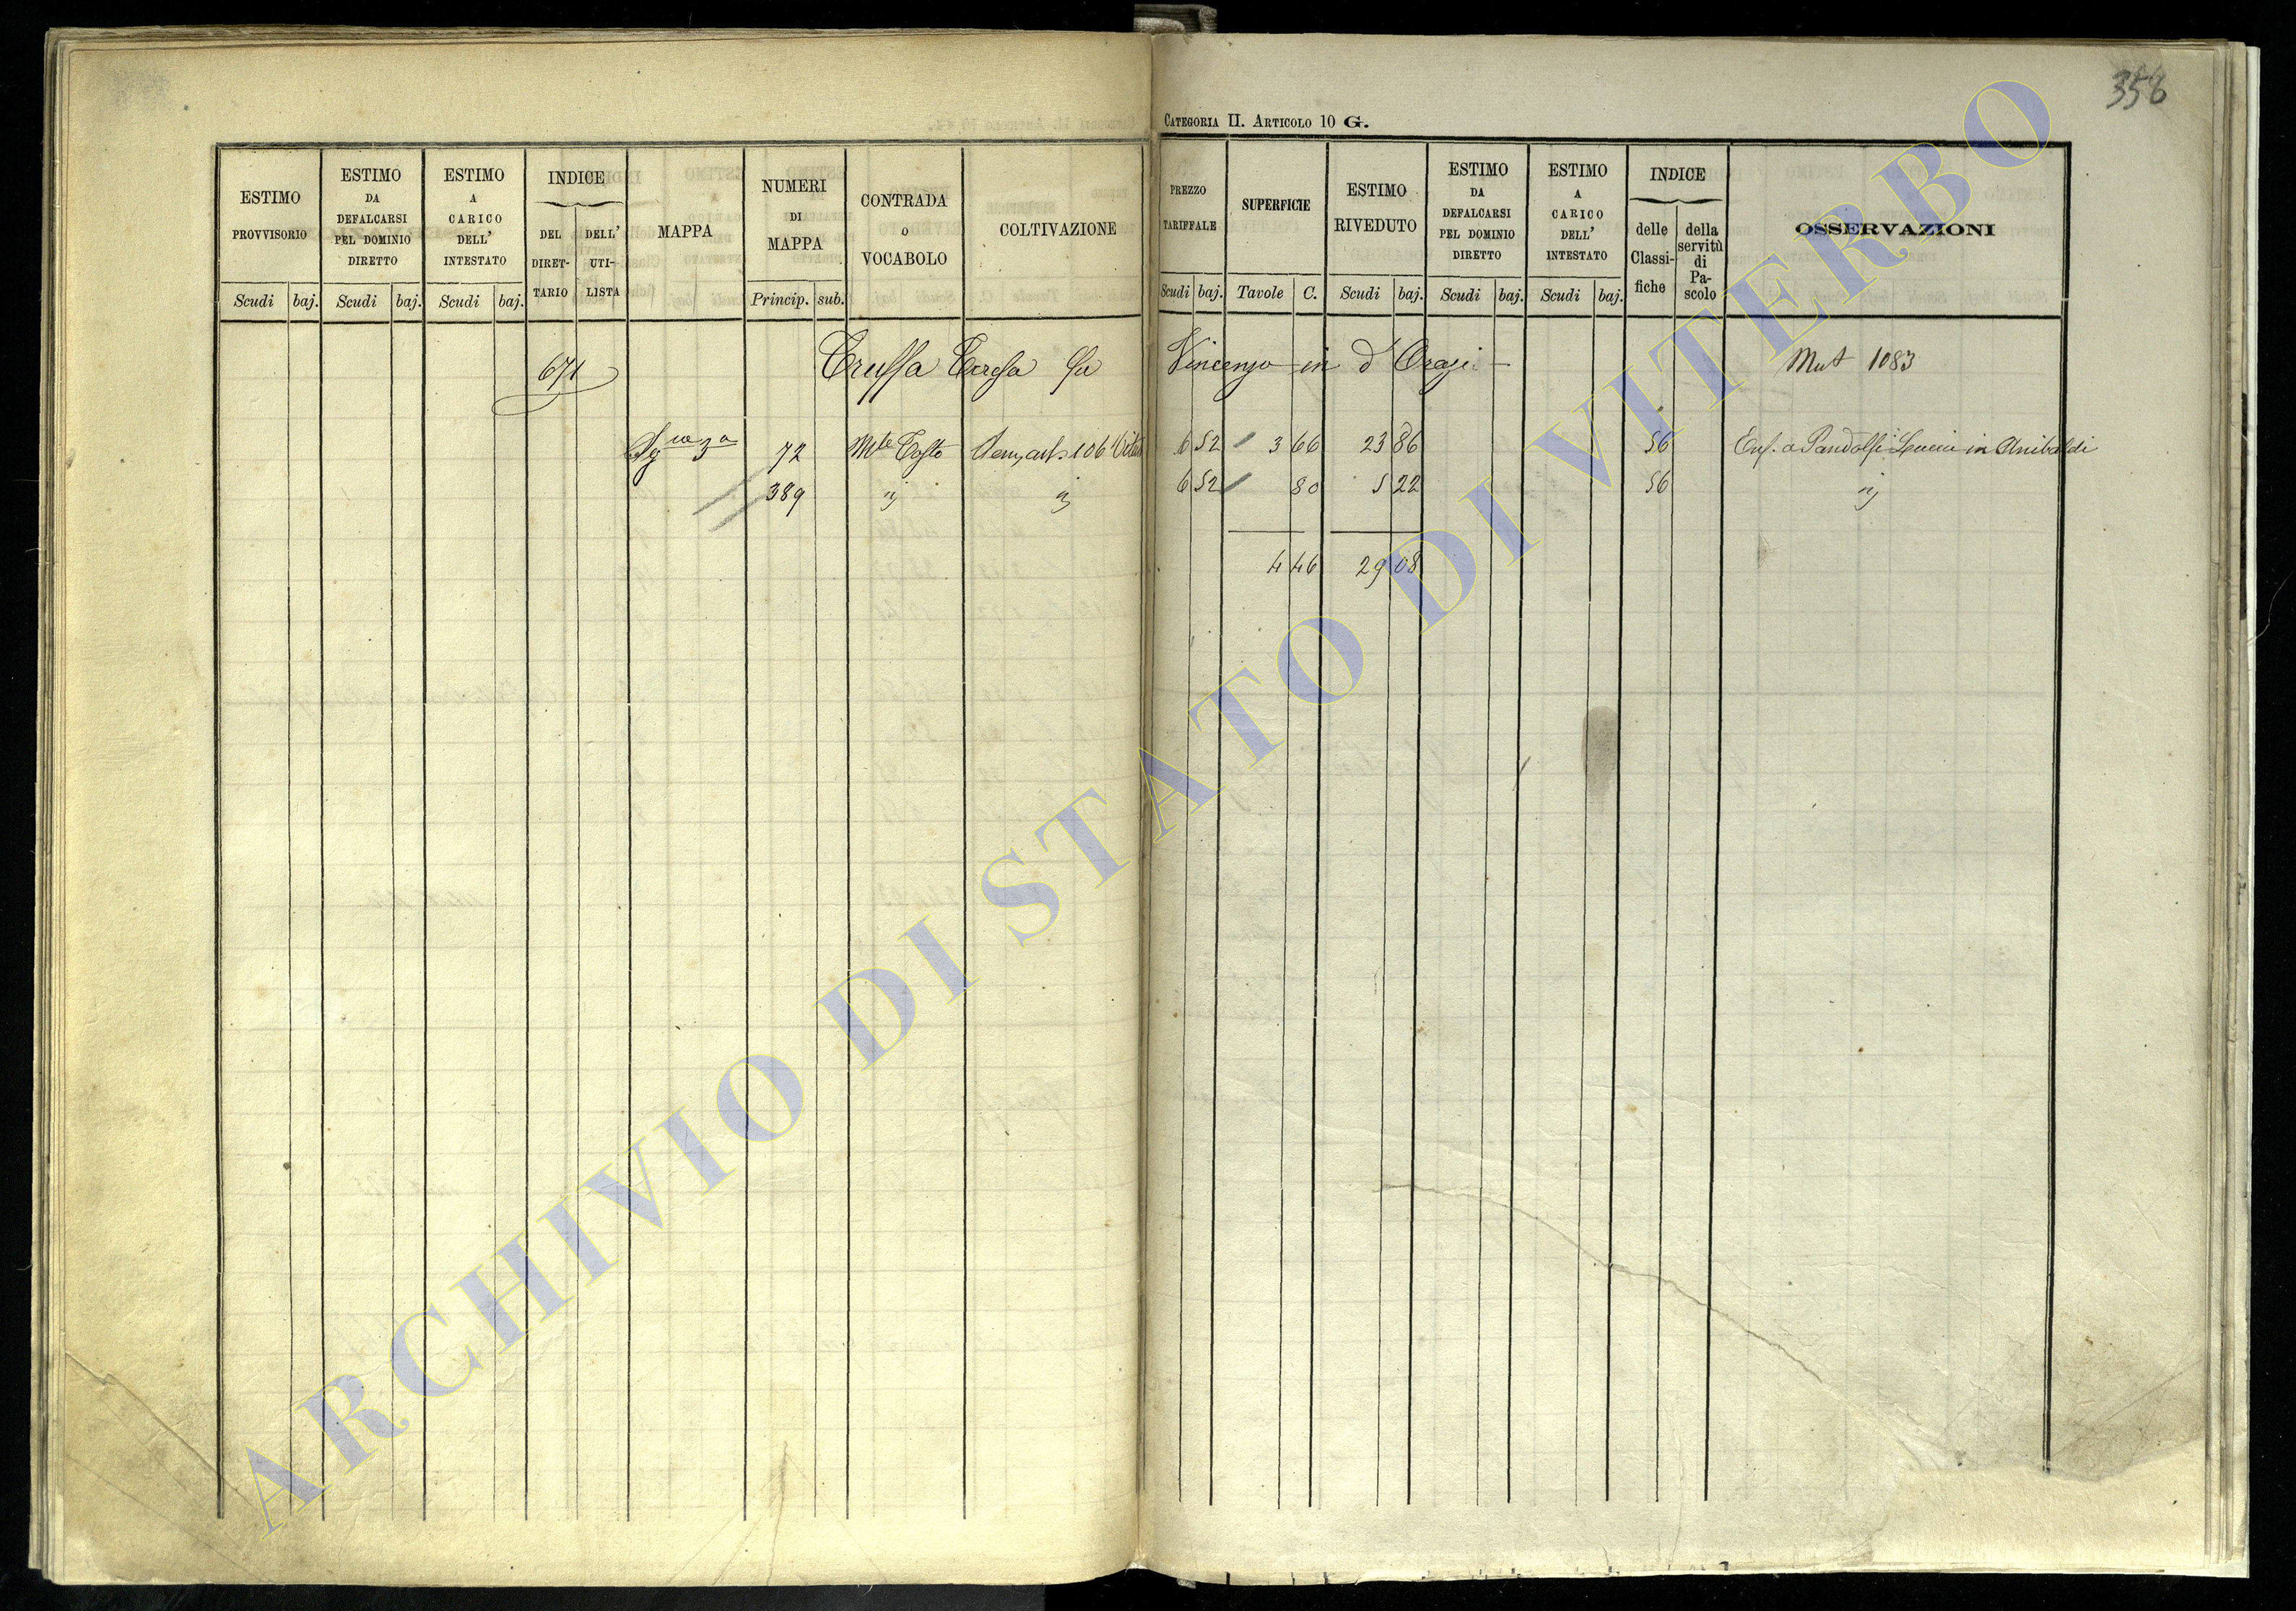 358
CATEGORIA II. ARTICOLO 10 G.
ESTIMO PROVVISORIO Scudi baj.
ESTIMO DA DEFALCARSI PEL DOMINIO DIRETTO Scudi baj.
ESTIMO A CARICO DELL' INTESTATO Scudi baj.
INDICE DEL DIRET- TARIO DELL' UTI- LISTA
MAPPA
NUMERI DI MAPPA Princip. sub.
CONTRADA O VOCABOLO
COLTIVAZIONE
PREZZO TARIFFALE Scudi baj.
SUPERFICIE Tavole C.
ESTIMO RIVEDUTO Scudi baj.
ESTIMO DA DEFALCARSI PEL DOMINIO DIRETTO Scudi baj.
ESTIMO A CARICO DELL' INTESTATO Scudi baj.
INDICE delle Classi- fiche della servitù di Pa- scolo
OSSERVAZIONI
671 Truffa Teresa fu Vincenzo in d'Orazi Mut 1083
3a 72 Mte 106 6 52 3 66 23 86 56 Enf. a Pandolfi Lucia in Anibaldi
389 " " 6 52 80 5 22 56 "
4 46 29 08
ARCHIVIO DI STATO DI VITERBO